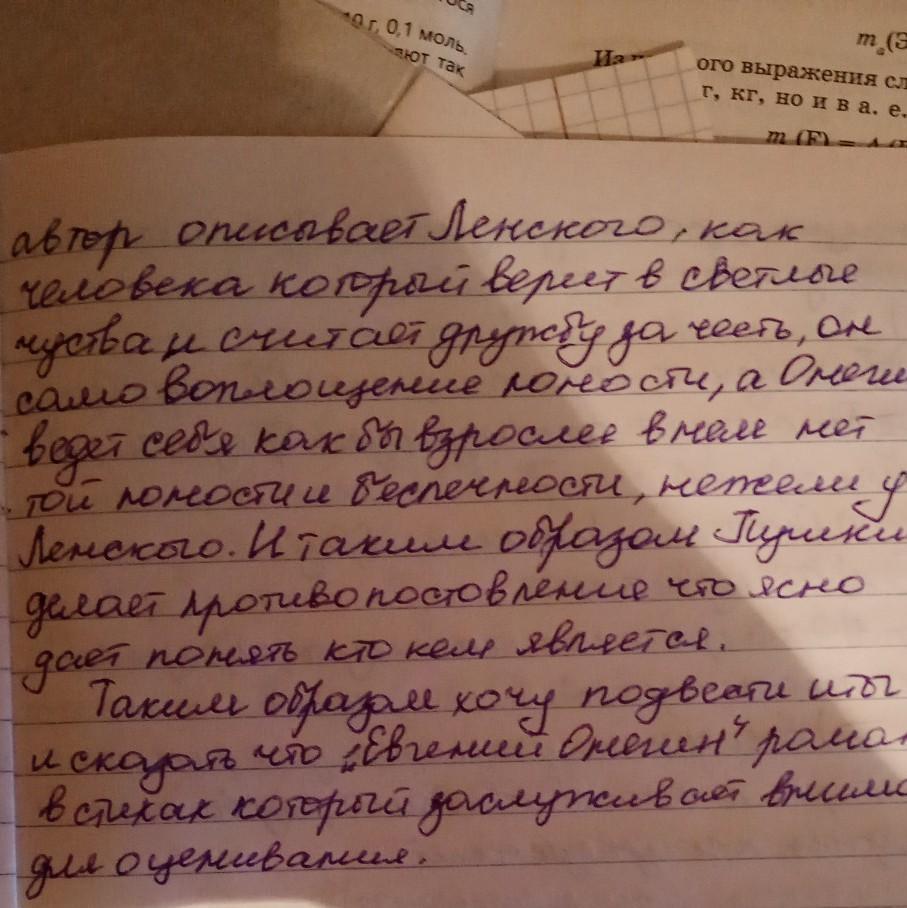 0 г, 0,1 моль.
ают так
m
Из ного выражения сл
г, кг, но и в а. е.
m (F) =
автор описывает Ленского, как
человека который верит в светлые
чуства и считает дружбу за честь, он
само воплощение юности, а Онеги
ведет себя как бы взрослее в нем нет
той юности и беспечности, нежели у
Ленского. И таким образом Пушки
делает противопостовление что ясно
дает понять кто кем является.
Таким образом хочу подвести итог
и сказать что „Евгений Онегин“ рома
в стихах который заслуживает внима
для оценивания.